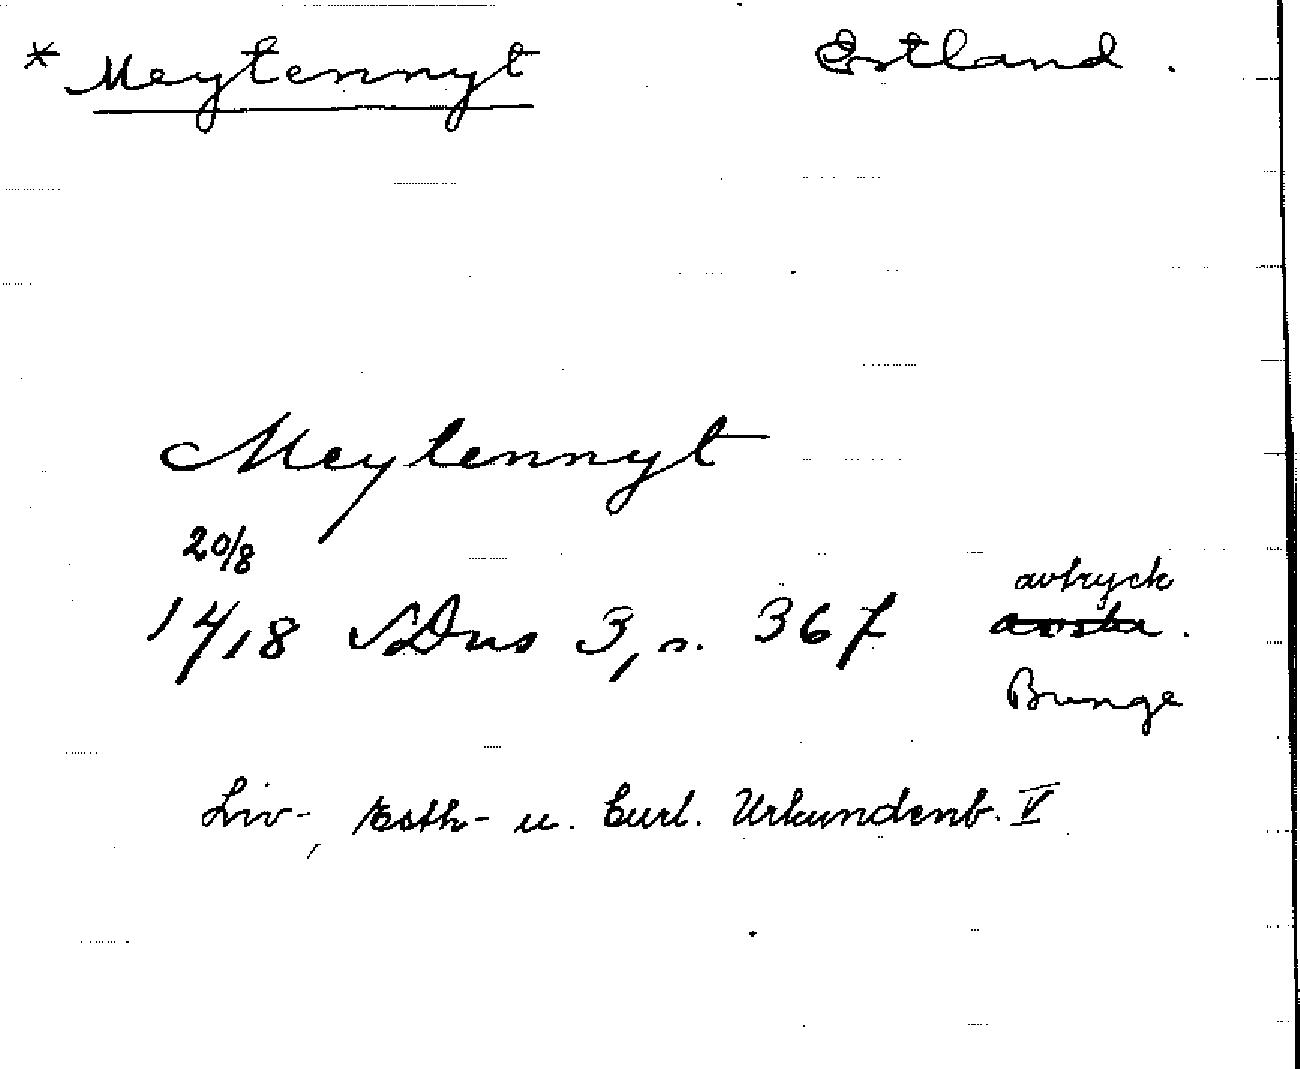 * Meytennyt Estland.
Meytennyt
20/8
14/18 SDns 3, s. 36 f avtryck
Bunge
Liv-, Esth- u. Curl. Urkundenb. V